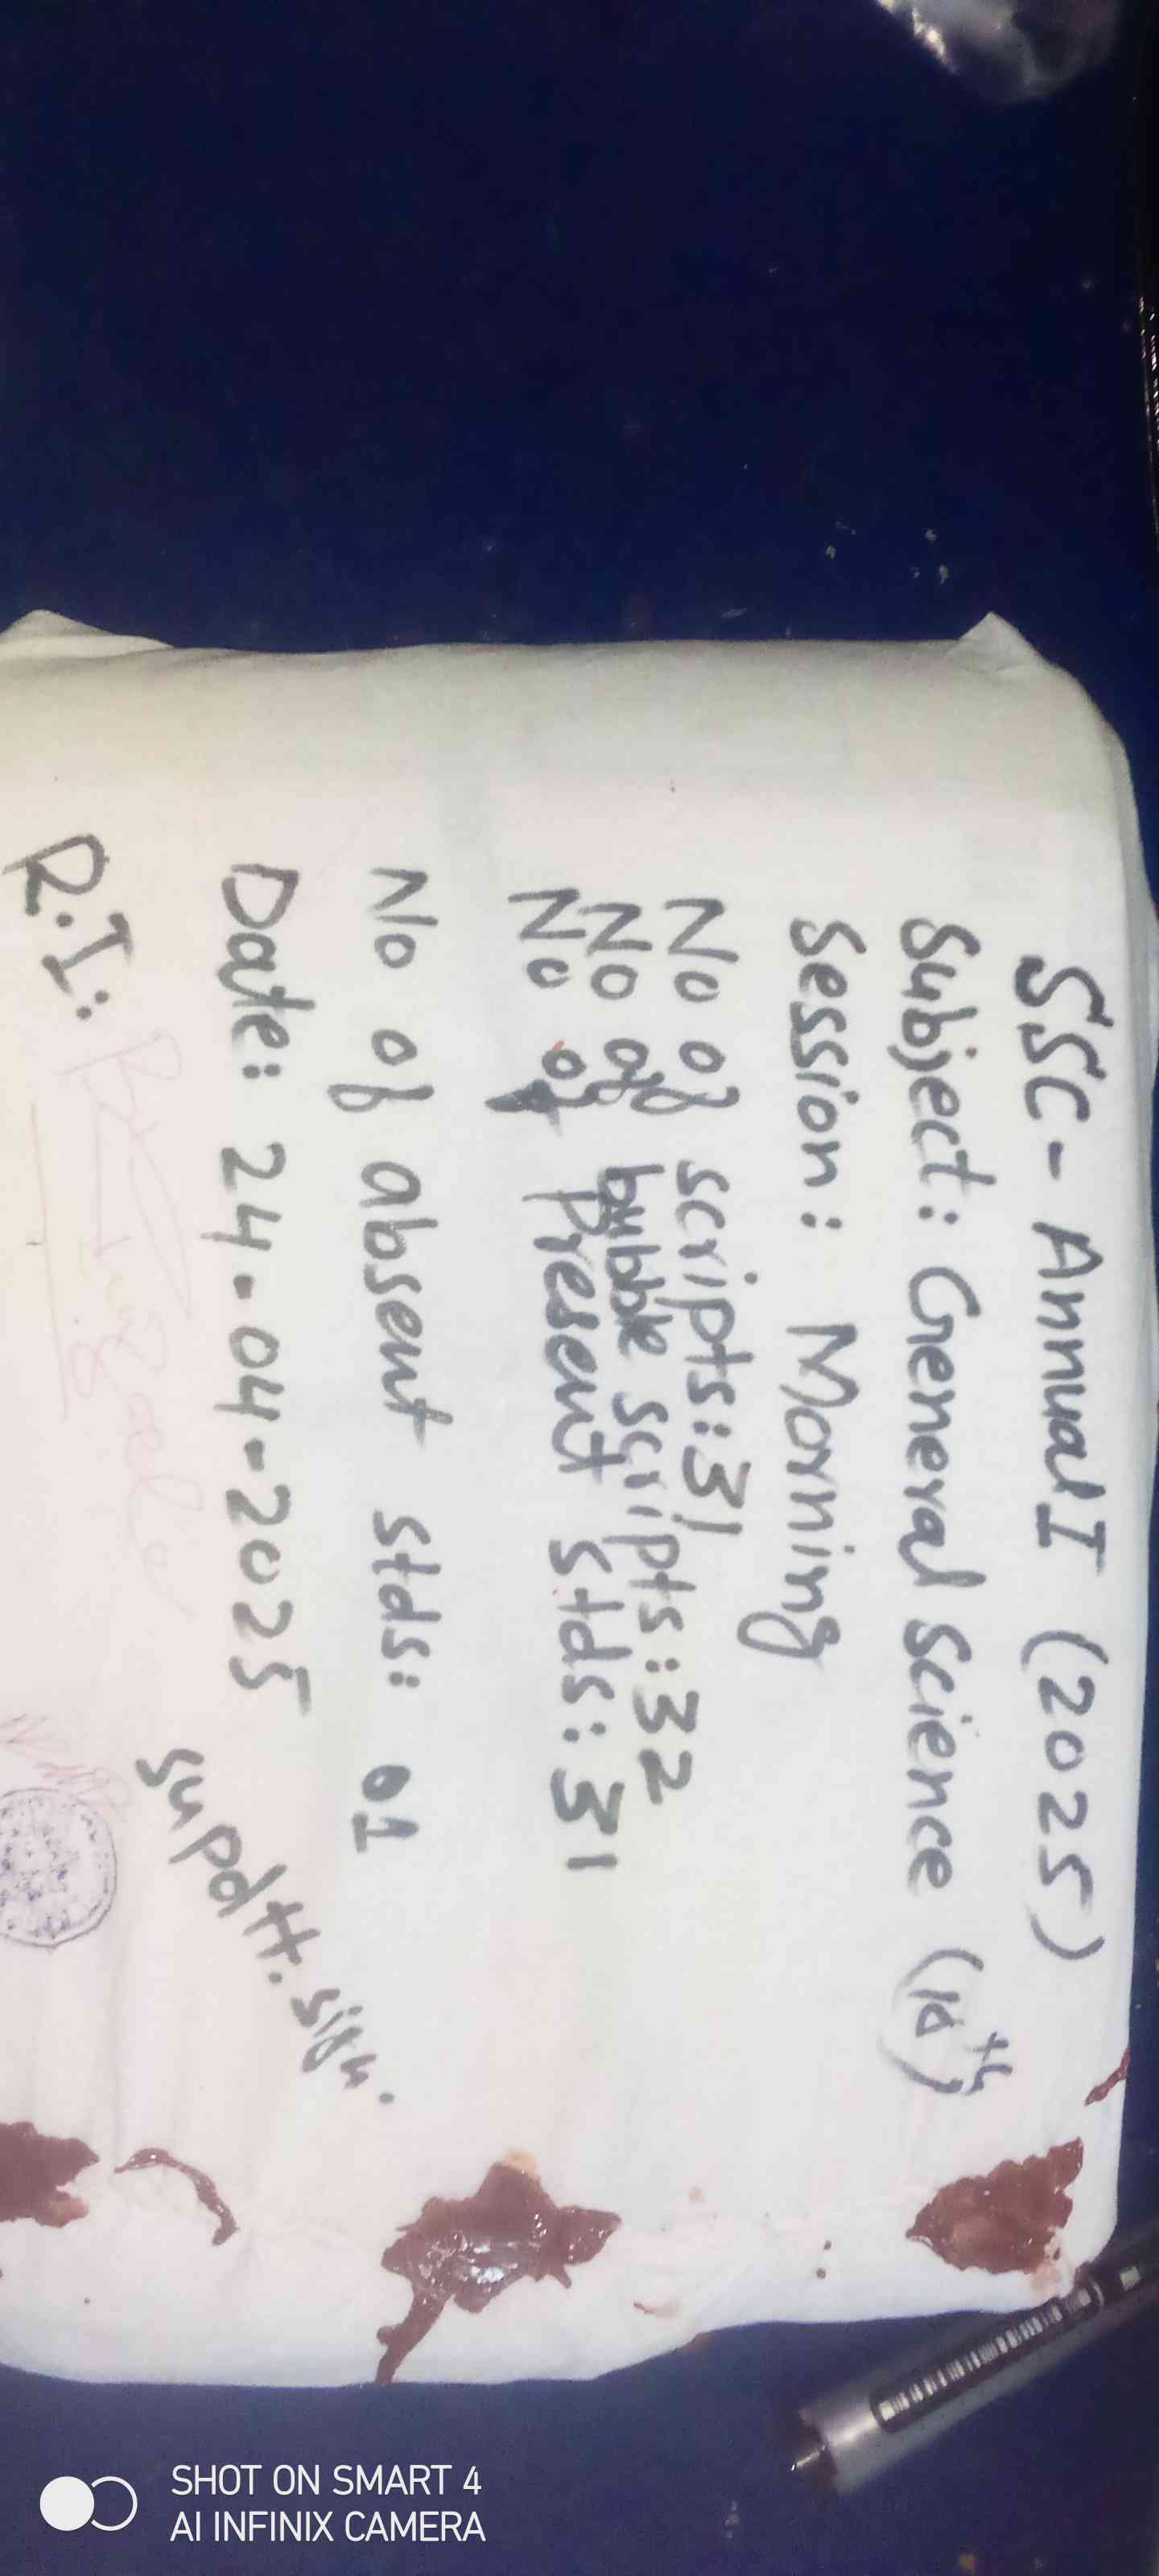 SSC - Annual I (2025)
Subject: General Science (10th)
Session: Morning
No of scripts: 31
No of bubble scripts: 32
No of present stds: 31
No of absent stds: 01
Date: 24-04-2025
Supdtt. sign.
R.I:
SHOT ON SMART 4
AI INFINIX CAMERA